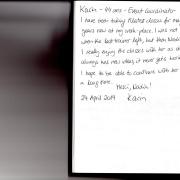 Karin - 44 ans - Event Coordinator
I have been taking Pilates classes for many
years now at my work place. I was not
when the best trainer left, but then Nadia
I really enjoy the classes with her as she
always has new ideas, it never gets boring
I hope to be able to continue with her
a long time.
Merci, Nadia!
24 April 2019 Karin